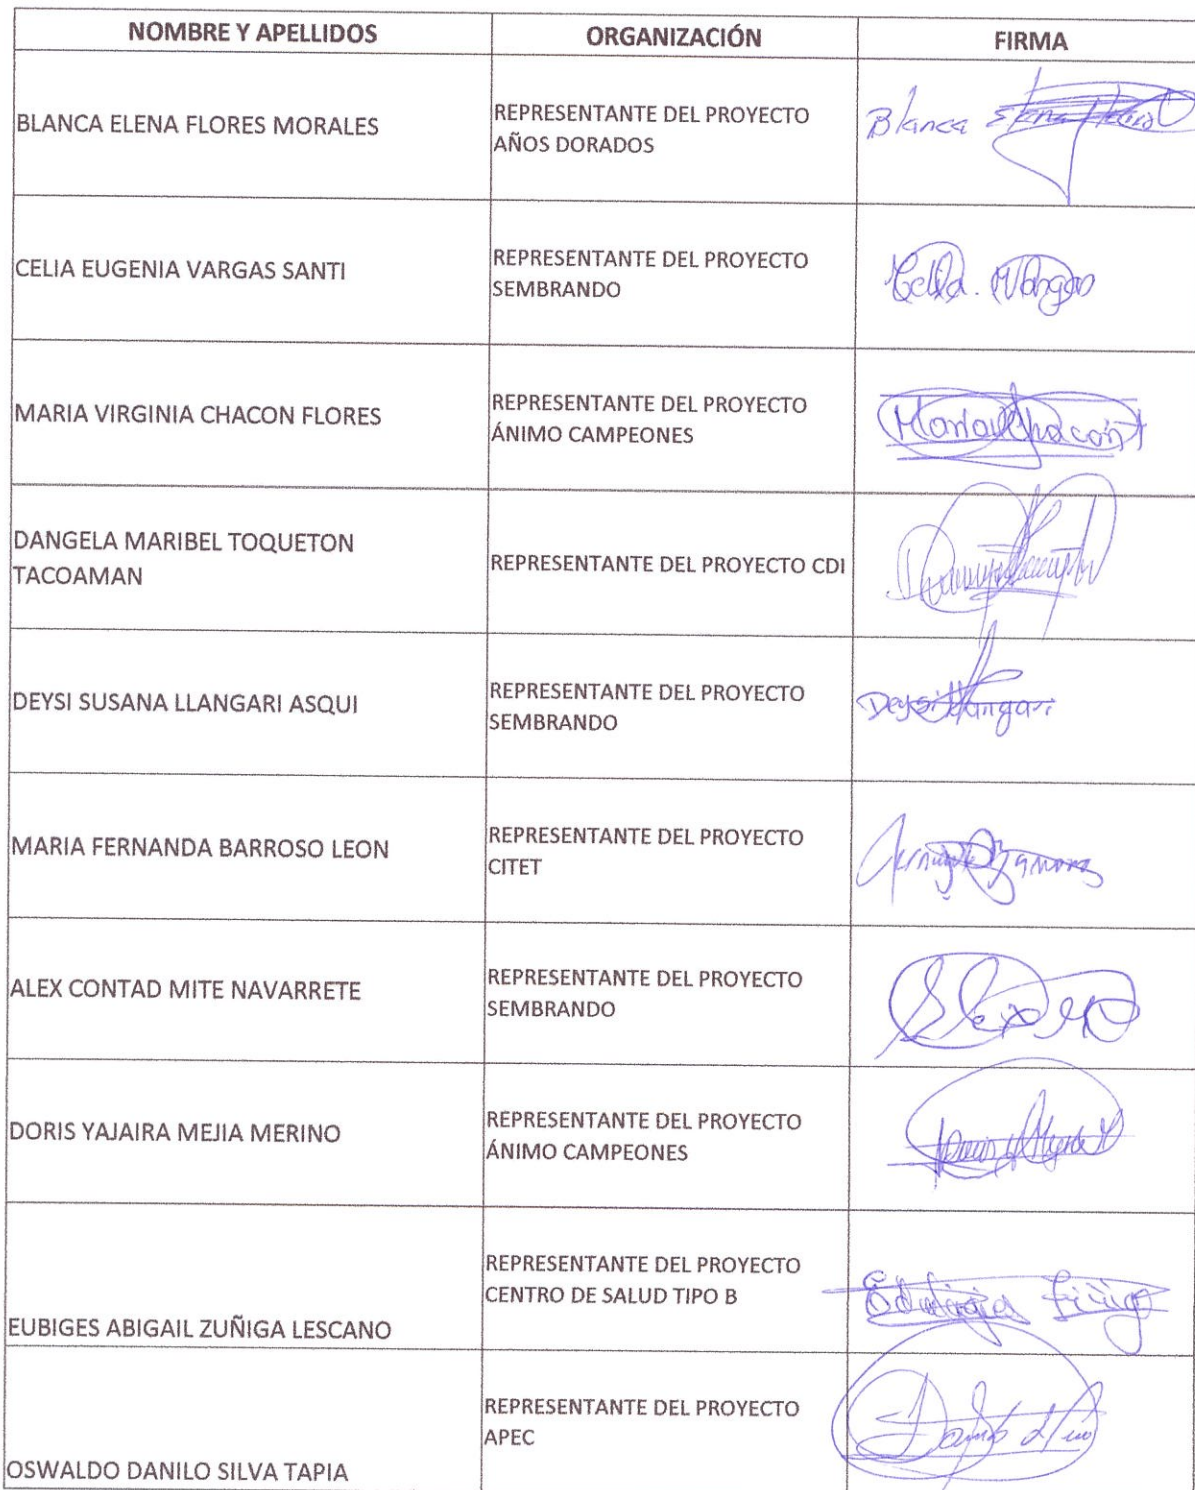 NOMBRE Y APELLIDOS ORGANIZACIÓN FIRMA
BLANCA ELENA FLORES MORALES
REPRESENTANTE DEL PROYECTO
AÑOS DORADOS
Blanca Elena
CELIA EUGENIA VARGAS SANTI
REPRESENTANTE DEL PROYECTO
SEMBRANDO
Celia. Vargas
MARIA VIRGINIA CHACON FLORES
REPRESENTANTE DEL PROYECTO
ÁNIMO CAMPEONES
Maria Chacon
DANGELA MARIBEL TOQUETON
TACOAMAN
REPRESENTANTE DEL PROYECTO CDI
DEYSI SUSANA LLANGARI ASQUI
REPRESENTANTE DEL PROYECTO
SEMBRANDO
Deysi Llangari
MARIA FERNANDA BARROSO LEON
REPRESENTANTE DEL PROYECTO
CITET
ALEX CONTAD MITE NAVARRETE
REPRESENTANTE DEL PROYECTO
SEMBRANDO
DORIS YAJAIRA MEJIA MERINO
REPRESENTANTE DEL PROYECTO
ÁNIMO CAMPEONES
EUBIGES ABIGAIL ZUÑIGA LESCANO
REPRESENTANTE DEL PROYECTO
CENTRO DE SALUD TIPO B
OSWALDO DANILO SILVA TAPIA
REPRESENTANTE DEL PROYECTO
APEC